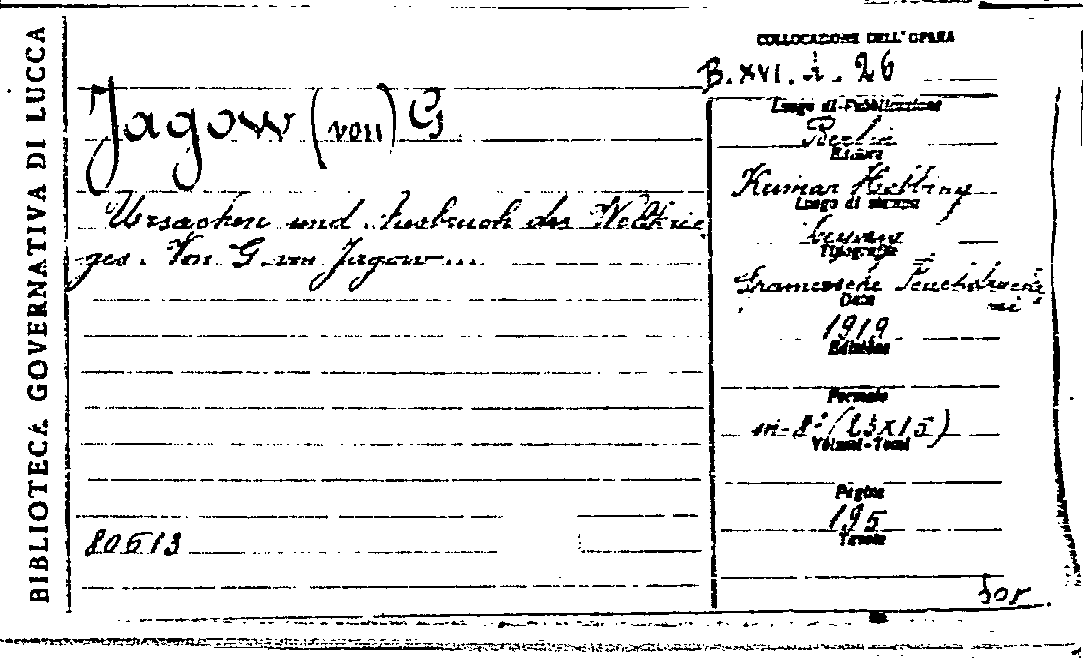 BIBLIOTECA GOVERNATIVA DI LUCCA
COLLOCAZIONE DELL'OPERA
B. XVI. i. 26
Jagow (von) G
Ursachen und Ausbruch des Weltkrie
ges. Von G. von Jagow...
Luogo di Pubblicazione
Berlin
Editore
Reimar Hobbing
Luogo di stampa
Tipografia
Data
1919
Edizione
Formato
in-8° (23x15)
Volumi-Tomi
Pagine
195
Tavole
80613